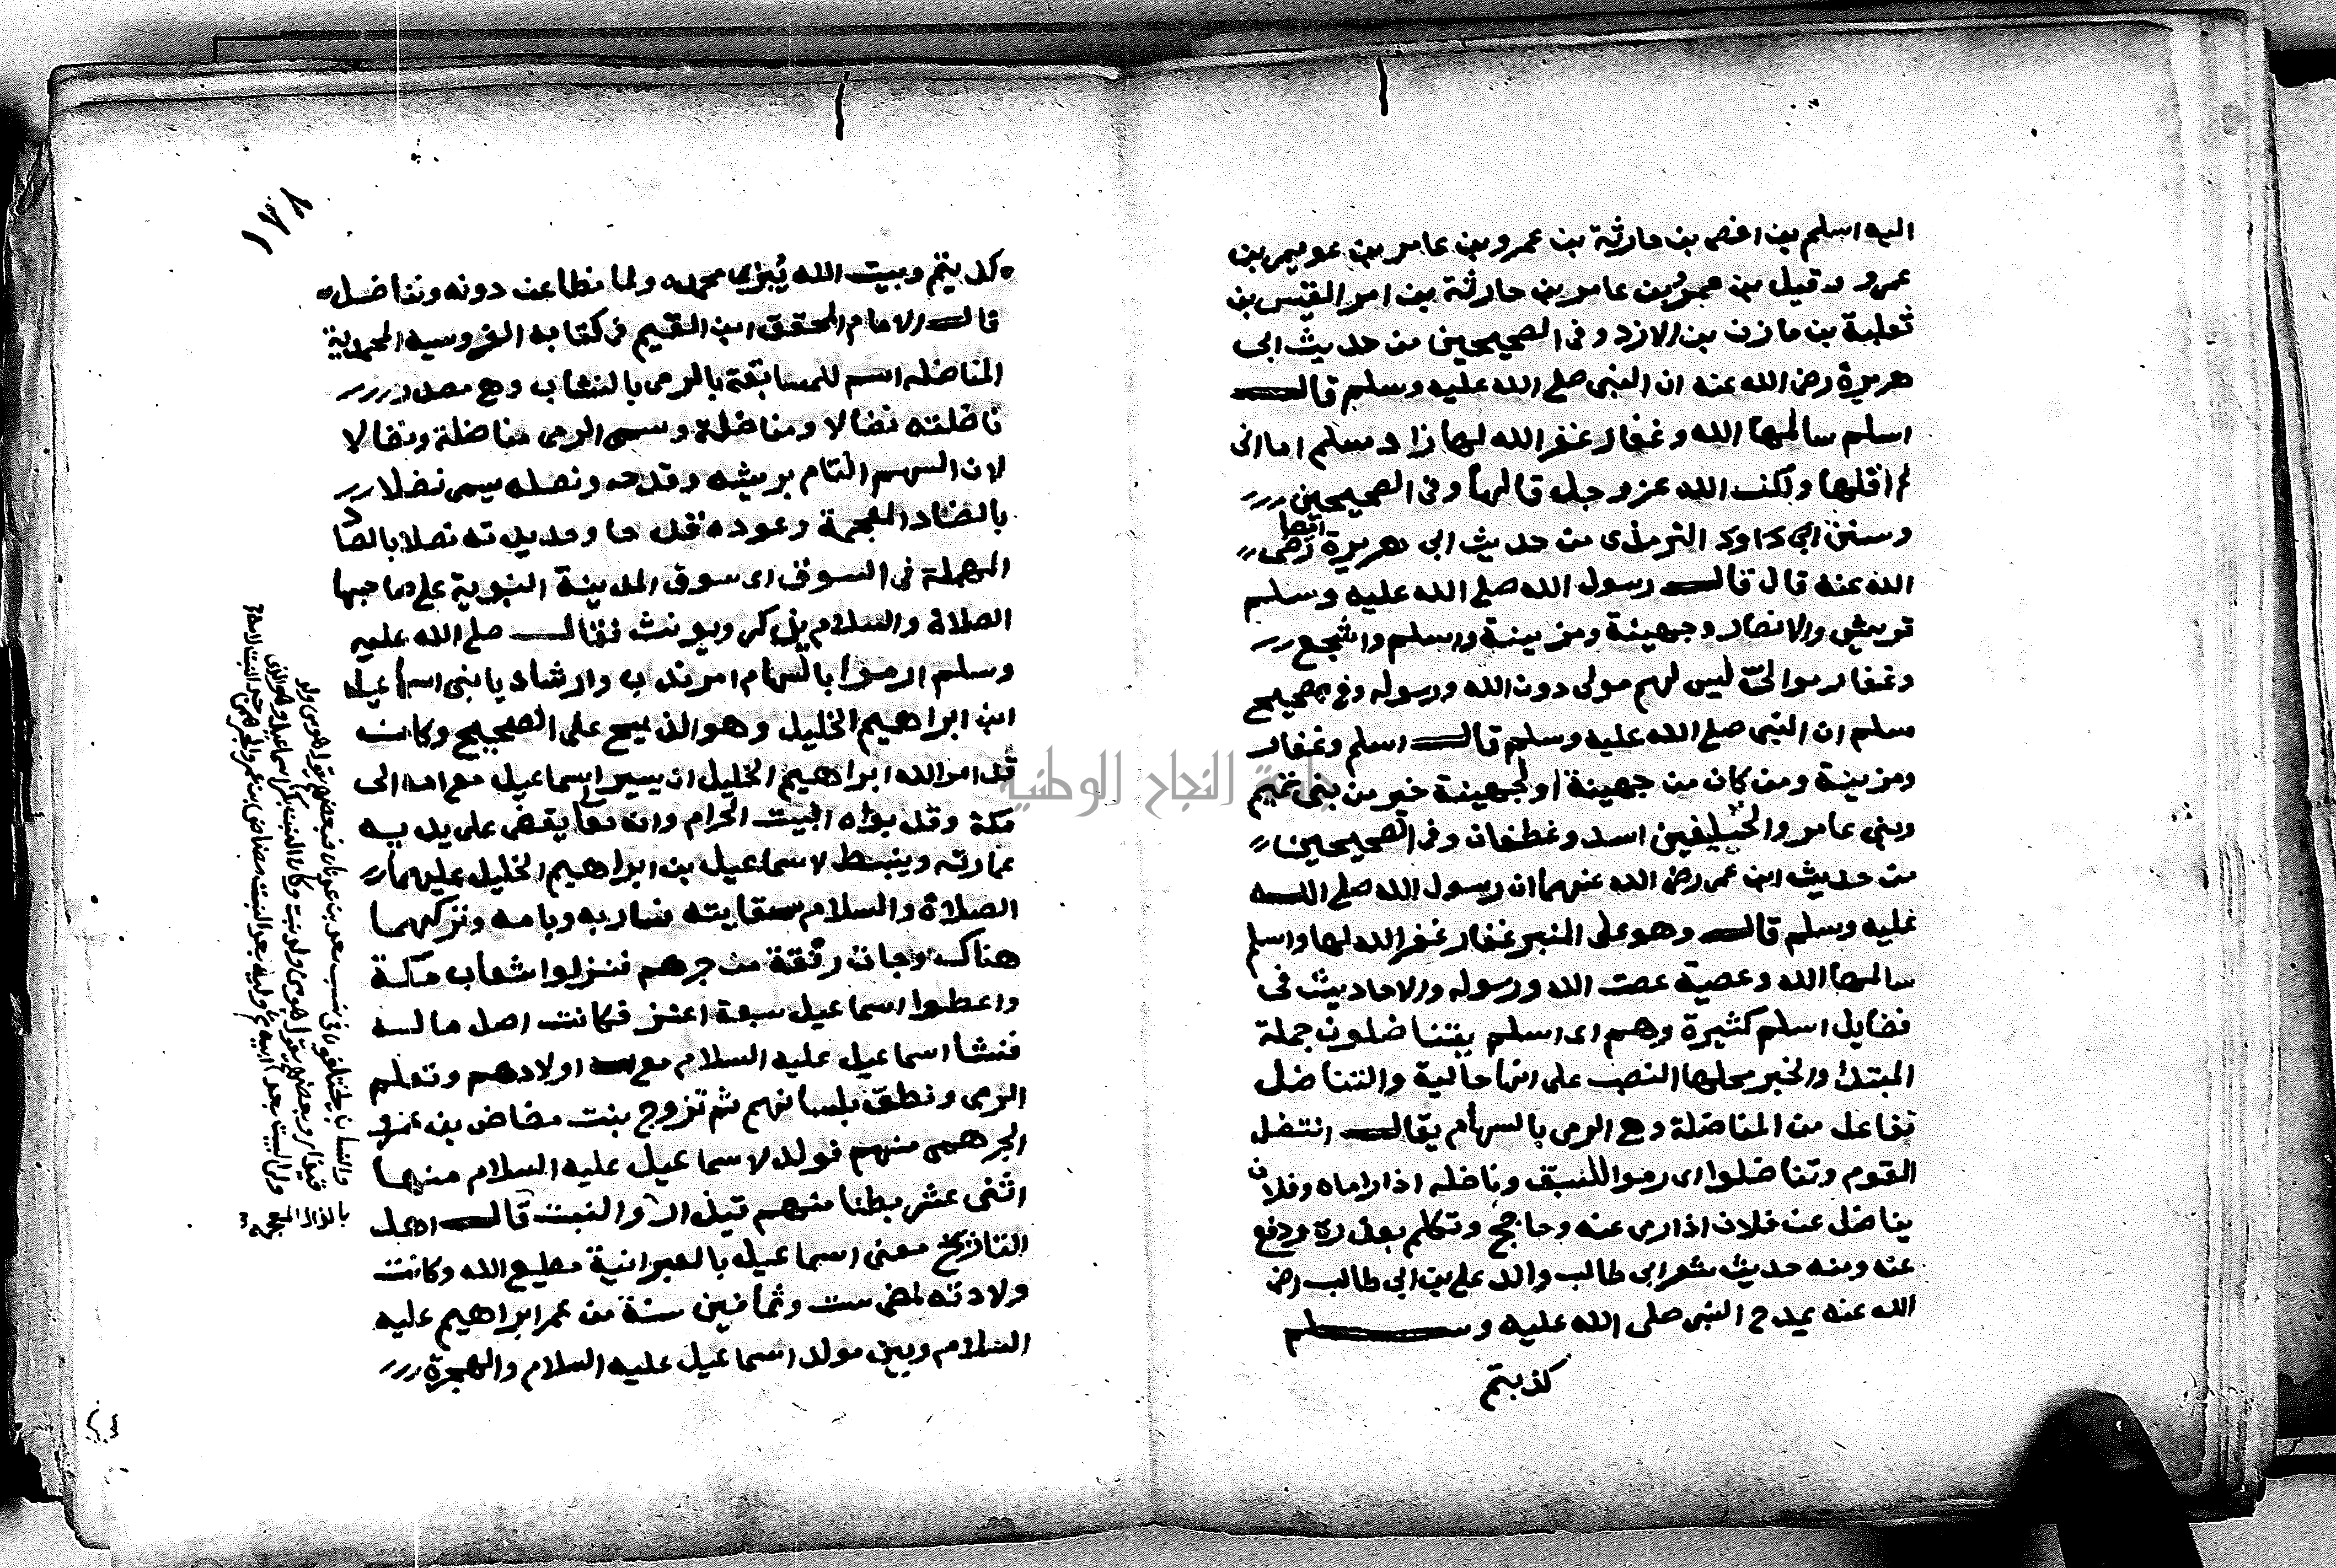 اليه اسلم بن افصى بن حارثة بن عمرو بن عامر بن عويمر بن
عمرو وقيل بن عمرو بن عامر بن حارثة بن امرء القيس بن
ثعلبة بن مازن بن الازد وفى الصحيحين من حديث ابى
هريرة رضى الله عنه ان النبى صلى الله عليه وسلم قال
اسلم سالمها الله وغفار غفر الله لها زاد مسلم اما انى
لم اقلها ولكن الله عز وجل قالها وفى الصحيحين
وسنن ابي داود الترمذى من حديث ابى هريرة ايضا رضى
الله عنه قال قال رسول الله صلى الله عليه وسلم
قريش والانصار وجهينة ومزينة واسلم واشجع
وغفار موالىّ ليس لهم مولى دون الله ورسوله وفي صحيح
مسلم ان النبى صلى الله عليه وسلم قال اسلم وغفار
ومزينة ومن كان من جهينة او لجهينة خير من بنى تميم
وبنى عامر والحليفين اسد وغطفان وفى الصحيحين
من حديث ابن عمر رضى الله عنهما ان رسول الله صلى الله
عليه وسلم قال وهو على المنبر غفار غفر الله لها واسلم
سالمها الله وعصية عصت الله ورسوله والاحاديث فى
فضايل اسلم كثيرة وهم اى اسلم يتناضلون جملة
المبتدا والخبر محلها النصب على انها حالية والتناضل
تفاعل من المناضلة وهى الرمى بالسهام يقال انتضل
القوم وتناضلوا اى رموا للسبق وناضله اذا راماه وفلان
يناضل عن فلان اذا رمى عنه وحاجج وتكلم بعذره ودفع
عنه ومنه حديث شعر ابى طالب والد على بن ابى طالب رضى
الله عنه يمدح النبى صلى الله عليه وسلم
كذبتم
١٧٨
كذبتم وبيت الله يُبزى محمد ولما نطاعن دونه ونناضل
قال الامام المحقق ابن القيم فى كتابه الفروسيه المحمدية
المناضله اسم للمسابقة بالرمى بالنشاب وهى مصدر
ناضلته نضالا ومناضلة وسمى الرمى مناضلة ونضالا
لان السهم التام بريشه وقدحه ونصله يسمى نضلا
بالضاد المعجمة وعوده قدحا وحديدته نصلا بالصاد
المهملة فى السوق اى سوق المدينة النبوية على صاحبها
الصلاة والسلام يذكر ويونث فقال صلى الله عليه
وسلم ارموا بالسهام امر ندب وارشاد يا بنى اسماعيل
ابن ابراهيم الخليل وهو الذبيح على الصحيح وكانت
قد امر الله ابراهيم الخليل ان يسير باسماعيل مع امه الى
مكة وقد بواه البيت الحرام وانه تعا يقضى على يديه
عمارته وينبط لاسماعيل بن ابراهيم الخليل عليهما
الصلاة والسلام سقايته فسار به وبامه ونزلهما
هناك وجات رفقة من جرهم فنزلوا شعاب مكة
واعطوا اسماعيل سبعة اعنز فكانت اصل ماله
فنشا اسماعيل عليه السلام مع اولادهم وتعلم
الرمى ونطق بلسانهم ثم تزوج بنت مضاض بن عمرو
الجرهمى منهم فولد لاسماعيل عليه السلام منها
اثنى عشر بطنا منهم قيذار والنبت قال اهل
التاريخ معنى اسماعيل بالعبرانية مطيع الله وكانت
ولادته لمضى ست وثمانين سنة من عمر ابراهيم عليه
السلام وبين مولد اسماعيل عليه السلام والهجرة
والنسابون يختلفون فى نسب معد بن عدنان فبعضهم يقول هو من ولد
قيذار وبعضهم يقول هو من ولد نبت وكان النبت بكر اسماعيل وهو الذى
ولى البيت بعد ابيه ثم وليه بعد النبت مضاض بن عمرو الجرهمى جد النبت لامه
بالذال المعجمة
جامعة النجاح الوطنية